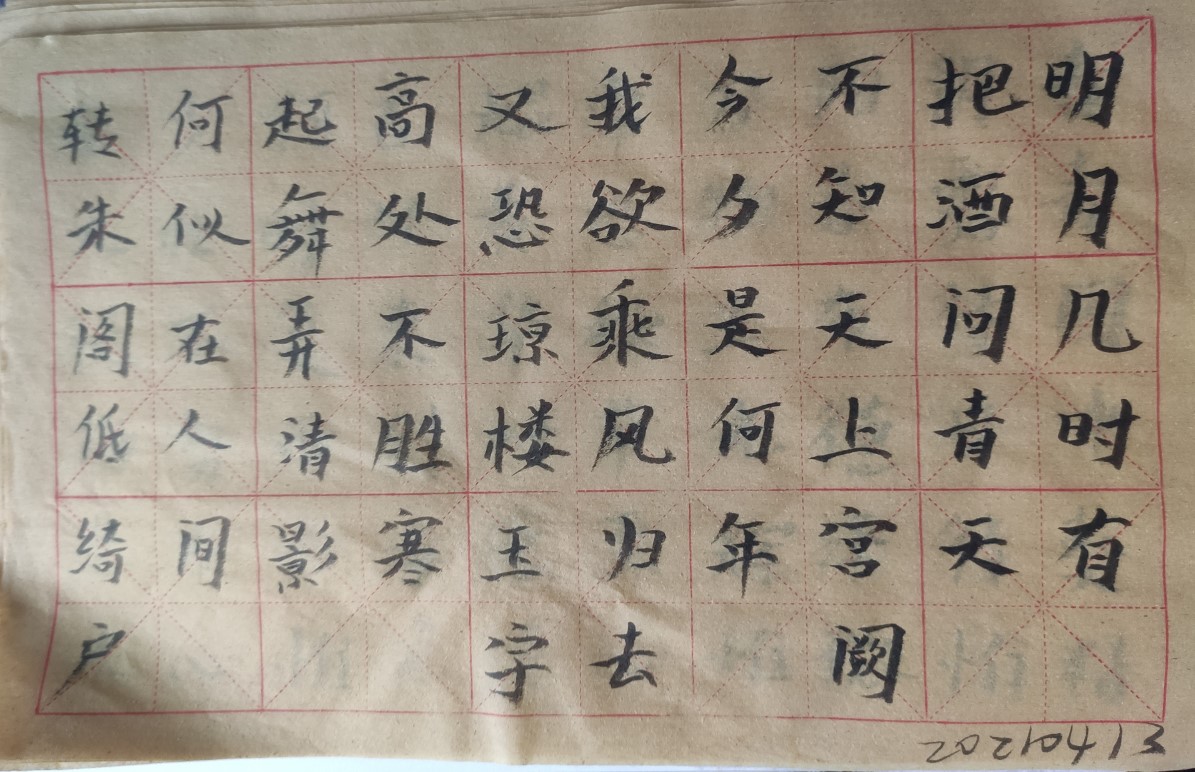 明月几时有
把酒问青天
不知天上宫阙
今夕是何年
我欲乘风归去
又恐琼楼玉宇
高处不胜寒
起舞弄清影
何似在人间
转朱阁低绮户
20210413